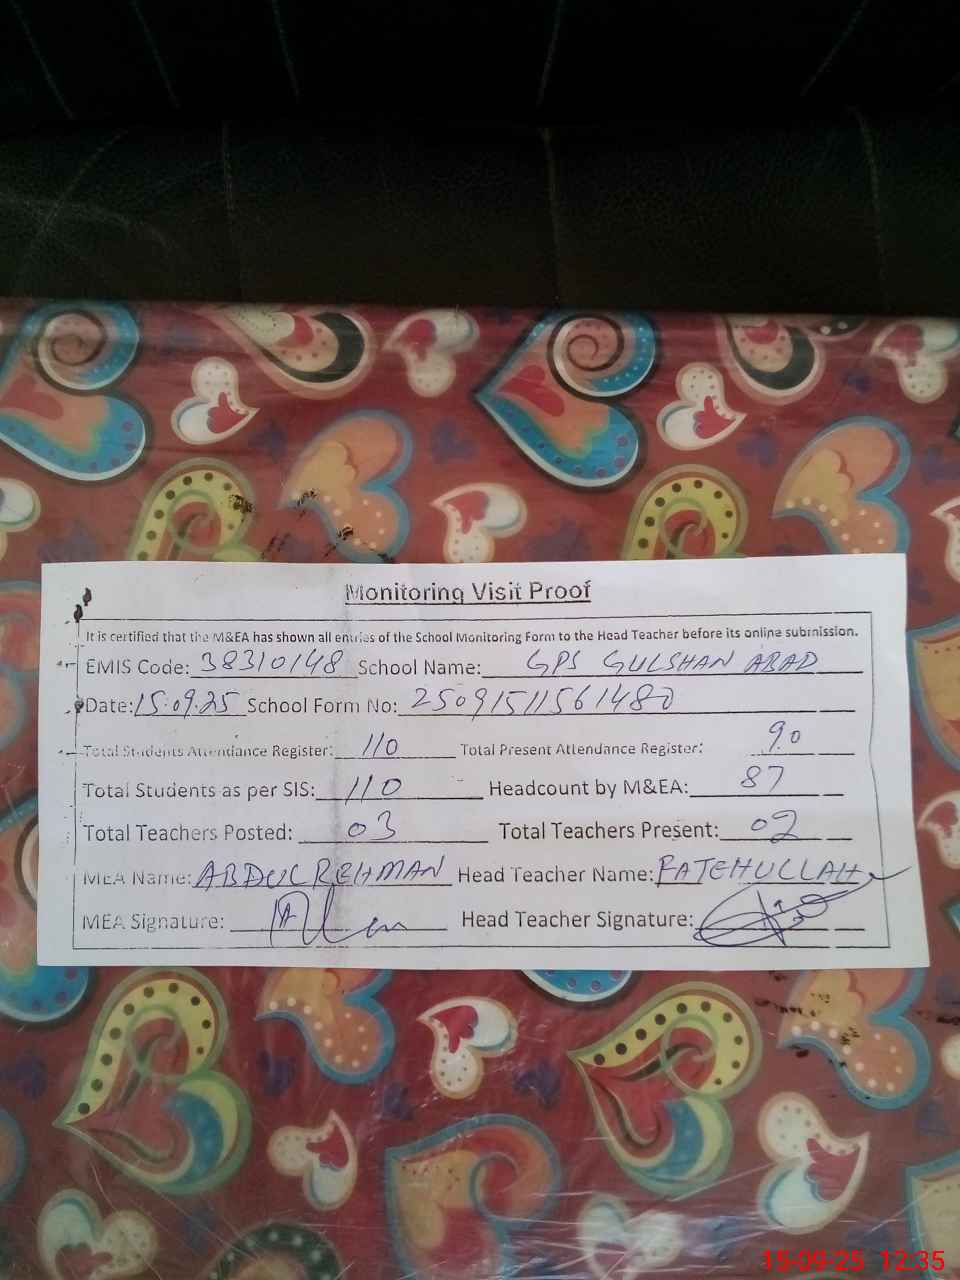 Monitoring Visit Proof
It is certified that the M&EA has shown all entries of the School Monitoring Form to the Head Teacher before its online submission.
EMIS Code: 38310148 School Name: GPS GULSHAN ABAD
Date: 15.09.25 School Form No: 25091511561480
Total Students Attendance Register: 110 Total Present Attendance Register: 90
Total Students as per SIS: 110 Headcount by M&EA: 87
Total Teachers Posted: 03 Total Teachers Present: 02
MEA Name: ABDUL REHMAN Head Teacher Name: FATEHULLAH
MEA Signature: Head Teacher Signature:
15-09-25 12:35